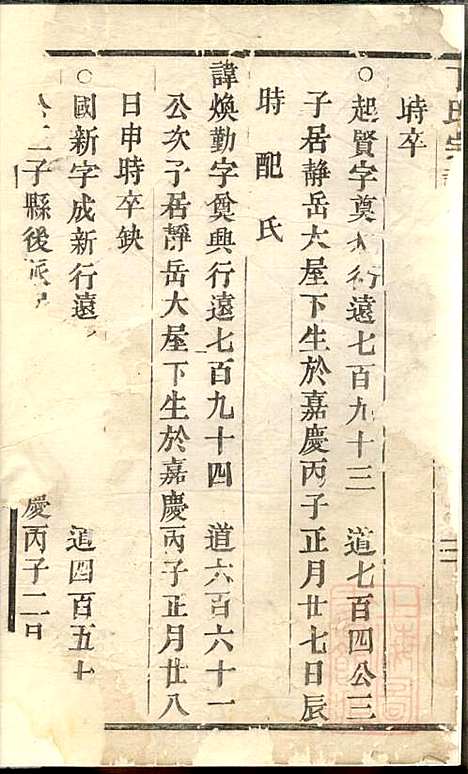 時卒
○起賢字奠大行遠七百九十三 道七百四公三
子居靜岳大屋下生於嘉慶丙子正月廿七日辰
時 配 氏
諱煥勤字奠興行遠七百九十四 道六百六十一
公次子居靜岳大屋下生於嘉慶丙子正月廿八
日申時卒缺
○國新字成新行遠 道四百五十
二子縣後派 慶丙子二日